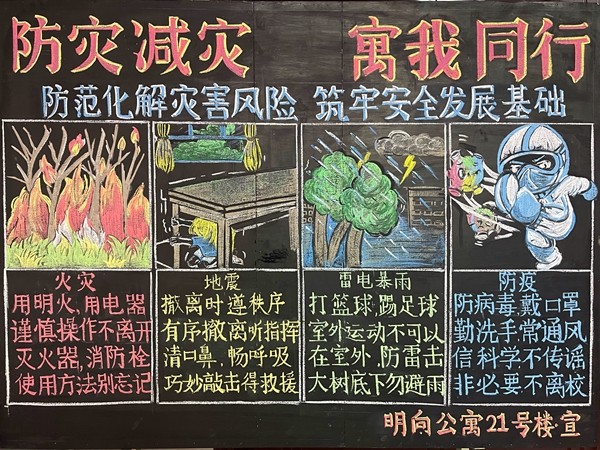 防灾减灾 寓我同行
防范化解灾害风险 筑牢安全发展基础
火灾
用明火,用电器
谨慎操作不离开
灭火器,消防栓
使用方法别忘记
地震
撤离时遵秩序
有序撤离听指挥
清口鼻,畅呼吸
巧妙敲击得救援
雷电暴雨
打篮球,踢足球
室外运动不可以
在室外,防雷击
大树底下勿避雨
防疫
防病毒,戴口罩
勤洗手,常通风
信科学不传谣
非必要不离校
明向公寓21号楼宣